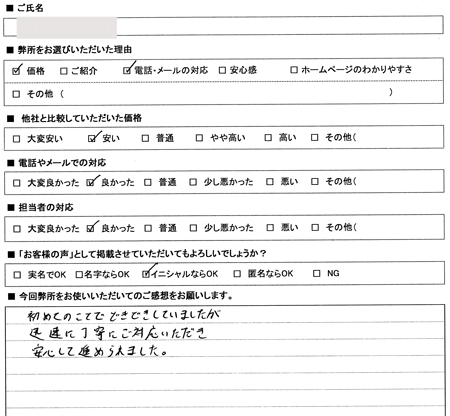 ■ ご氏名
■ 弊所をお選びいただいた理由
☑ 価格 □ ご紹介 ☑ 電話・メールの対応 □ 安心感 □ ホームページのわかりやすさ
□ その他 ( )
■ 他社と比較していただいた価格
□ 大変安い ☑ 安い □ 普通 □ やや高い □ 高い □ その他(
■ 電話やメールでの対応
□ 大変良かった ☑ 良かった □ 普通 □ 少し悪かった □ 悪い □ その他(
■ 担当者の対応
□ 大変良かった ☑ 良かった □ 普通 □ 少し悪かった □ 悪い □ その他(
■「お客様の声」として掲載させていただいてもよろしいでしょうか?
□ 実名でOK □ 名字ならOK ☑ イニシャルならOK □ 匿名ならOK □ NG
■ 今回弊所をお使いいただいてのご感想をお願いします。
初めてのことで どきどきしていましたが
迅速に丁寧にご対応いただき
安心して進めらえました。